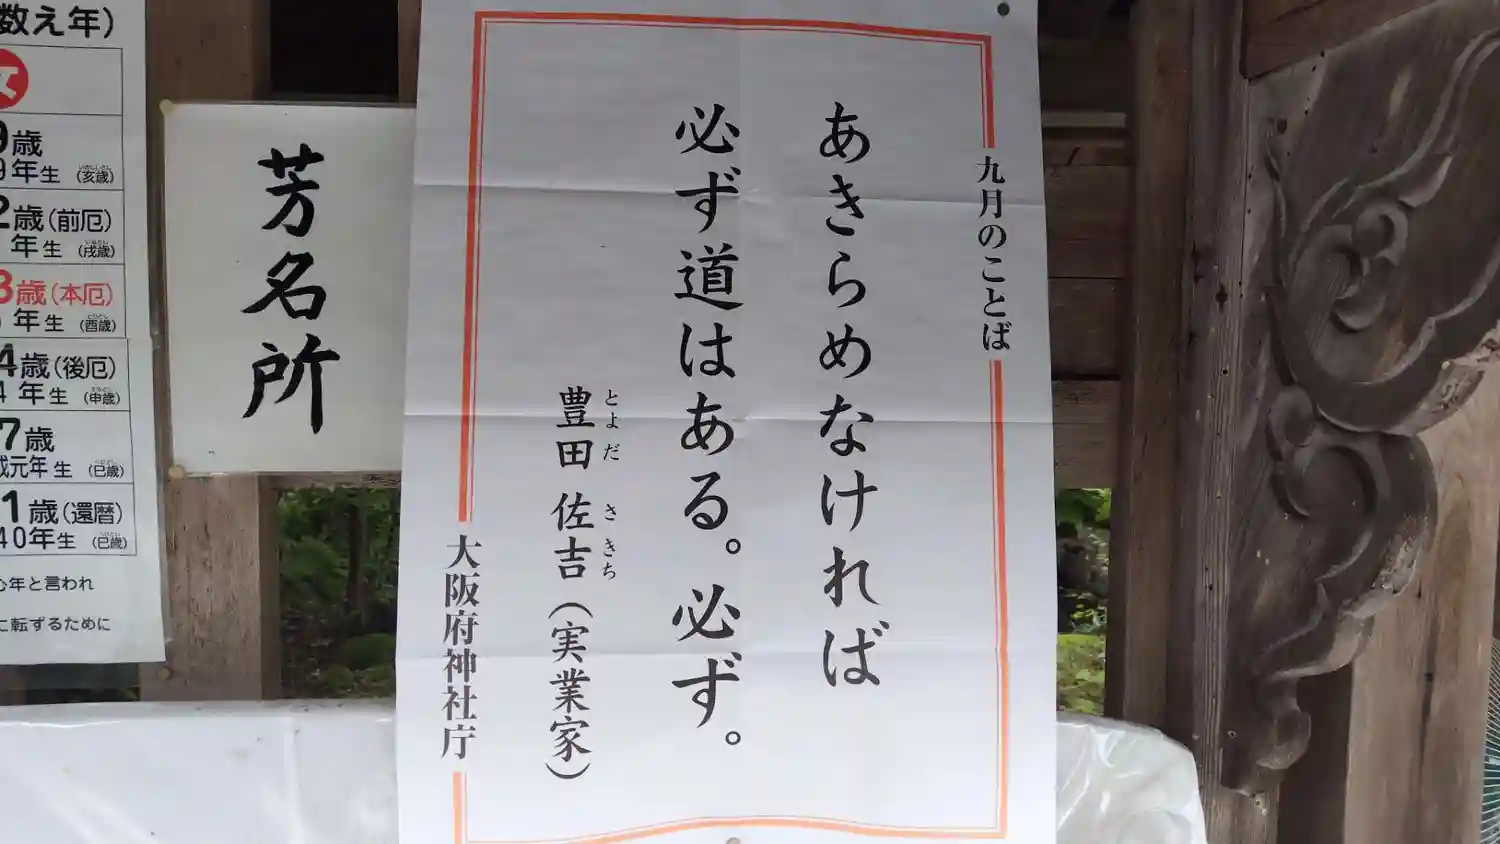 九月のことば
あきらめなければ
必ず道はある。必ず。
豊田 佐吉（実業家）
とよだ さきち
大阪府神社庁
芳名所
(数え年)
女
9歳
9年生 (亥歳)
2歳(前厄)
年生 (戌歳)
3歳(本厄)
年生 (酉歳)
4歳(後厄)
4年生 (申歳)
7歳
成元年生 (巳歳)
1歳(還暦)
40年生 (巳歳)
年と言われ
に転ずるために